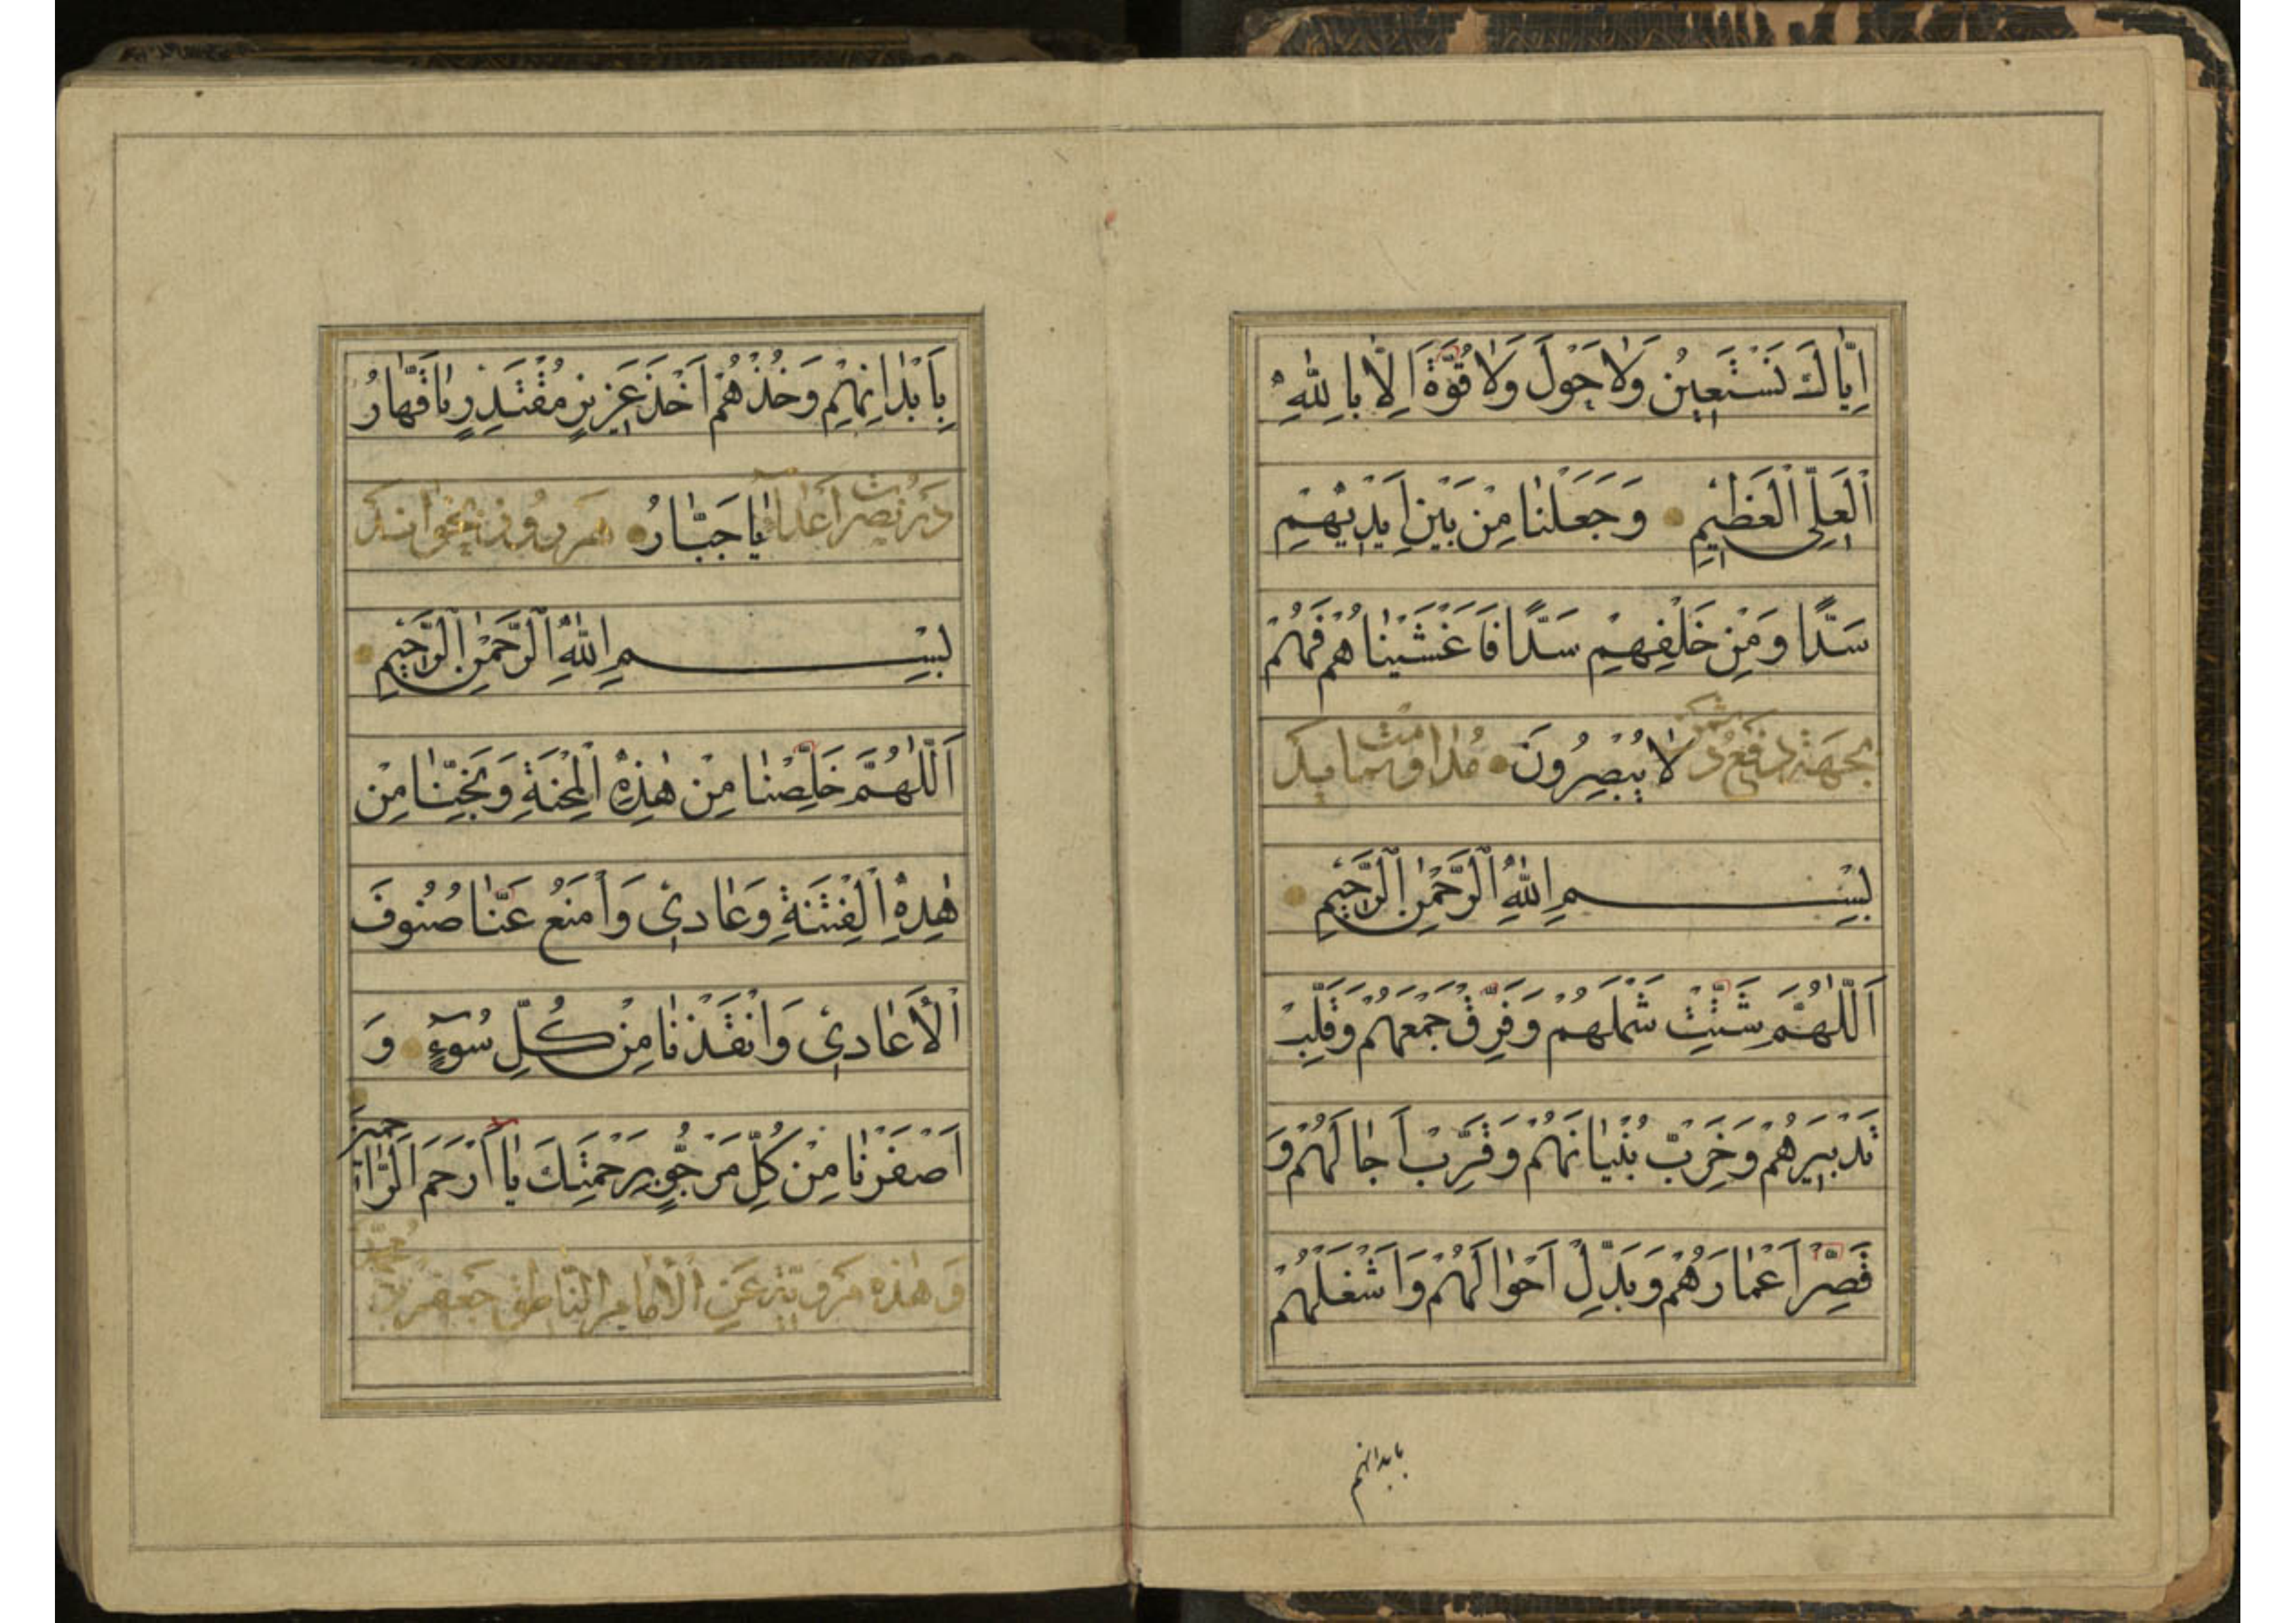 اِيّاكَ نَسْتَعِينُ وَلاٰ حَوْلَ وَلاٰ قُوَّةَ اِلّاٰ بِاللهِ
اَلْعَلِىِّ الْعَظيمِ وَجَعَلْنٰا مِنْ بَيْنِ اَيْديٖهِمْ
سَدًّا وَمِنْ خَلْفِهِمْ سَدًّا فَاَغْشَيْنٰاهُمْ فَهُمْ
بجهة دفع لاٰ يُبْصِرُونَ مداومت نمايد
بِسْمِ اللهِ الرَّحْمٰنِ الرَّحيٖمِ
اَللّٰهُمَّ شَتِّتْ شَمْلَهُمْ وَفَرِّقْ جَمْعَهُمْ وَقَلِّبْ
تَدْبيٖرَهُمْ وَخَرِّبْ بُنْيٰانَهُمْ وَقَرِّبْ اٰجٰالَهُمْ وَ
قَصِّرْ اَعْمٰارَهُمْ وَبَدِّلْ اَحْوٰالَهُمْ وَاشْغَلْهُمْ
بابدانهم
بِاَبْدٰانِهِمْ وَخُذْهُمْ اَخْذَ عَزيٖزٍ مُقْتَدِرٍ يٰا قَهّٰارُ
يٰا جَبّٰارُ هر روز بخواند
بِسْمِ اللهِ الرَّحْمٰنِ الرَّحيٖمِ
اَللّٰهُمَّ خَلِّصْنٰا مِنْ هٰذِهِ الْمِحْنَةِ وَنَجِّنٰا مِنْ
هٰذِهِ الْفِتْنَةِ وَعٰاديٖ وَامْنَعْ عَنّٰا صُنُوفَ
الْاَعٰاديٖ وَانْقَذْنٰا مِنْ كُلِّ سُوۤءٍ وَ
اَصْفَرْنٰا مِنْ كُلِّ مَرْجُوٍّ بِرَحْمَتِكَ يٰا اَرْحَمَ الرّٰاحمين
وَهٰذِهِ مَرْوِيَّة عَنِ الْاِمٰامِ النّٰاطِقِ جَعْفَرِ بْن محمد